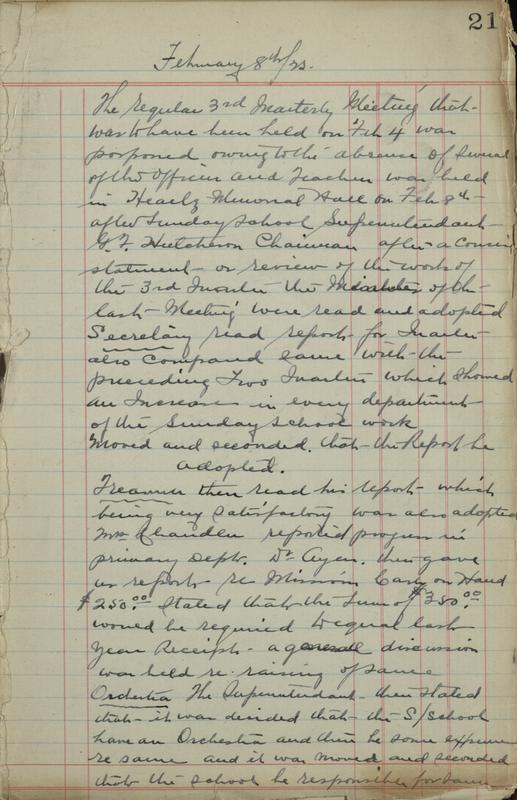 21
February 8th/23.
The regular 3rd Quarterly Meeting that
was to have been held on Feb 4 was
posponed owing to the absence of several
of the Officers and Teachers was held
in Healy Memorial Hall on Feb 8th
after Sunday School Superentendant
G. F. Hutcheson Chairman after a concise
statment or review of the work of
the 3rd Quarter the Minutes of the
last Meeting were read and adopted
Secretary read report for Quarter
also Compared same with the
preceeding Two Quarters which showed
an Increase in every department
of the Sunday School work
Moved and seconded that the Report be
adopted.
Treasurer then read his report which
being very satisfactory was also adopted
Mrs Chandler reported progress in
primary Dept. Dr Ayer. then gave
us report re Mission Cash on Hand
$250.00 Stated that the Sum of $350.00
would be required to equal last
Year Receipts - a general discussion
was held re raising of same
Orchestra The Superentendant then stated
that it was decided that the S/School
have an Orchestra and there be some expense
re same and it was moved and seconded
that the school be responsible for same